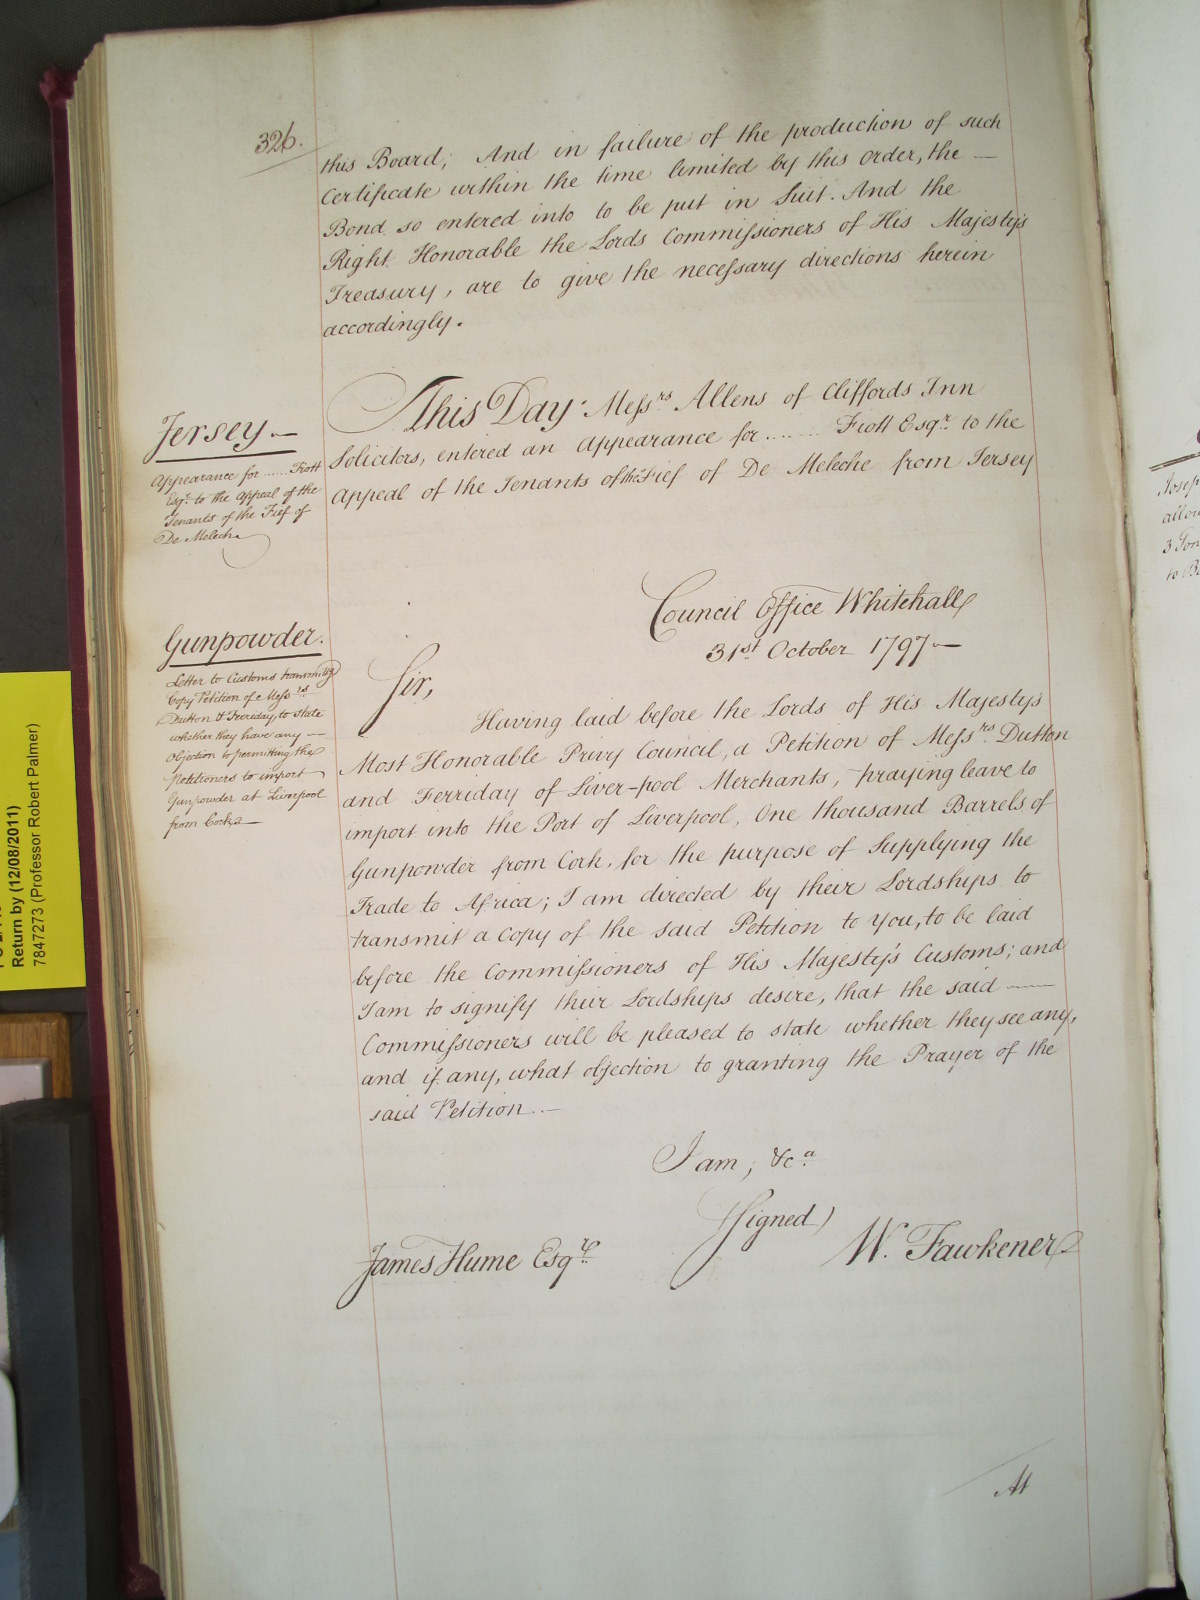 326.
this Board; And in failure of the production of such
Certificate within the time limited by this Order, the —
Bond so entered into to be put in Suit. And the
Right Honorable the Lords Commissioners of His Majesty's
Treasury, are to give the necessary directions herein
accordingly.
Jersey —
Appearance for ...... Fiott
Esqr. to the Appeal of the
Tenants of the Fief of
De Meleche
This Day Messrs Allens of Cliffords Inn
Solicitors, entered an Appearance for ....... Fiott Esqr. to the
Appeal of the Tenants of the Fief of De Meleche from Jersey
Council Office Whitehall
31st October 1797 —
Gunpowder.
Letter to Customs transmittg
Copy Petition of Messrs
Dutton & Ferriday, to state
whether they have any —
Objection to permitting the
Petitioners to import
Gunpowder at Liverpool
from Cork —
Sir,
Having laid before the Lords of His Majesty's
Most Honorable Privy Council, a Petition of Messrs Dutton
and Ferriday of Liver-pool Merchants, praying leave to
import into the Port of Liverpool, One thousand Barrels of
Gunpowder from Cork, for the purpose of Supplying the
Trade to Africa; I am directed by their Lordships to
transmit a Copy of the said Petition to You, to be laid
before the Commissioners of His Majesty's Customs; and
I am to signify their Lordships desire, that the said —
Commissioners will be pleased to state whether they see any,
and if any, what objection to granting the Prayer of the
said Petition. —
I am, &ca
(Signed)
W. Fawkener
James Hume Esqr.
At
Return by (12/08/2011)
7847273 (Professor Robert Palmer)
Josep
allow
3 Ton